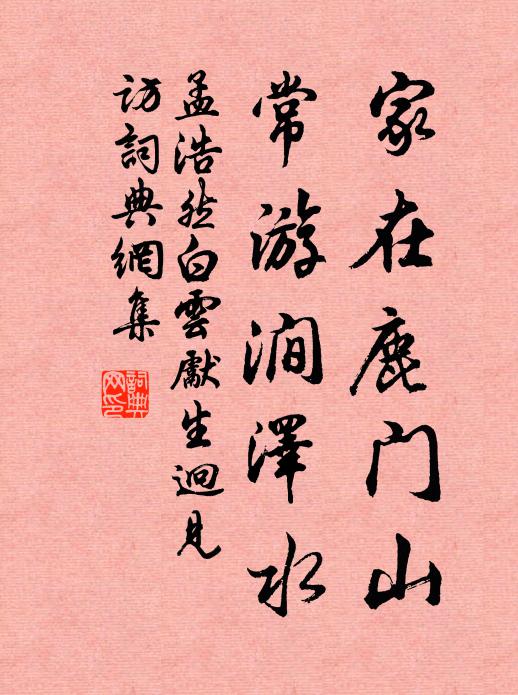 家在鹿门山
常游澗澤水
孟浩然白雲獻生迥見
访詞典網集
詞典网印